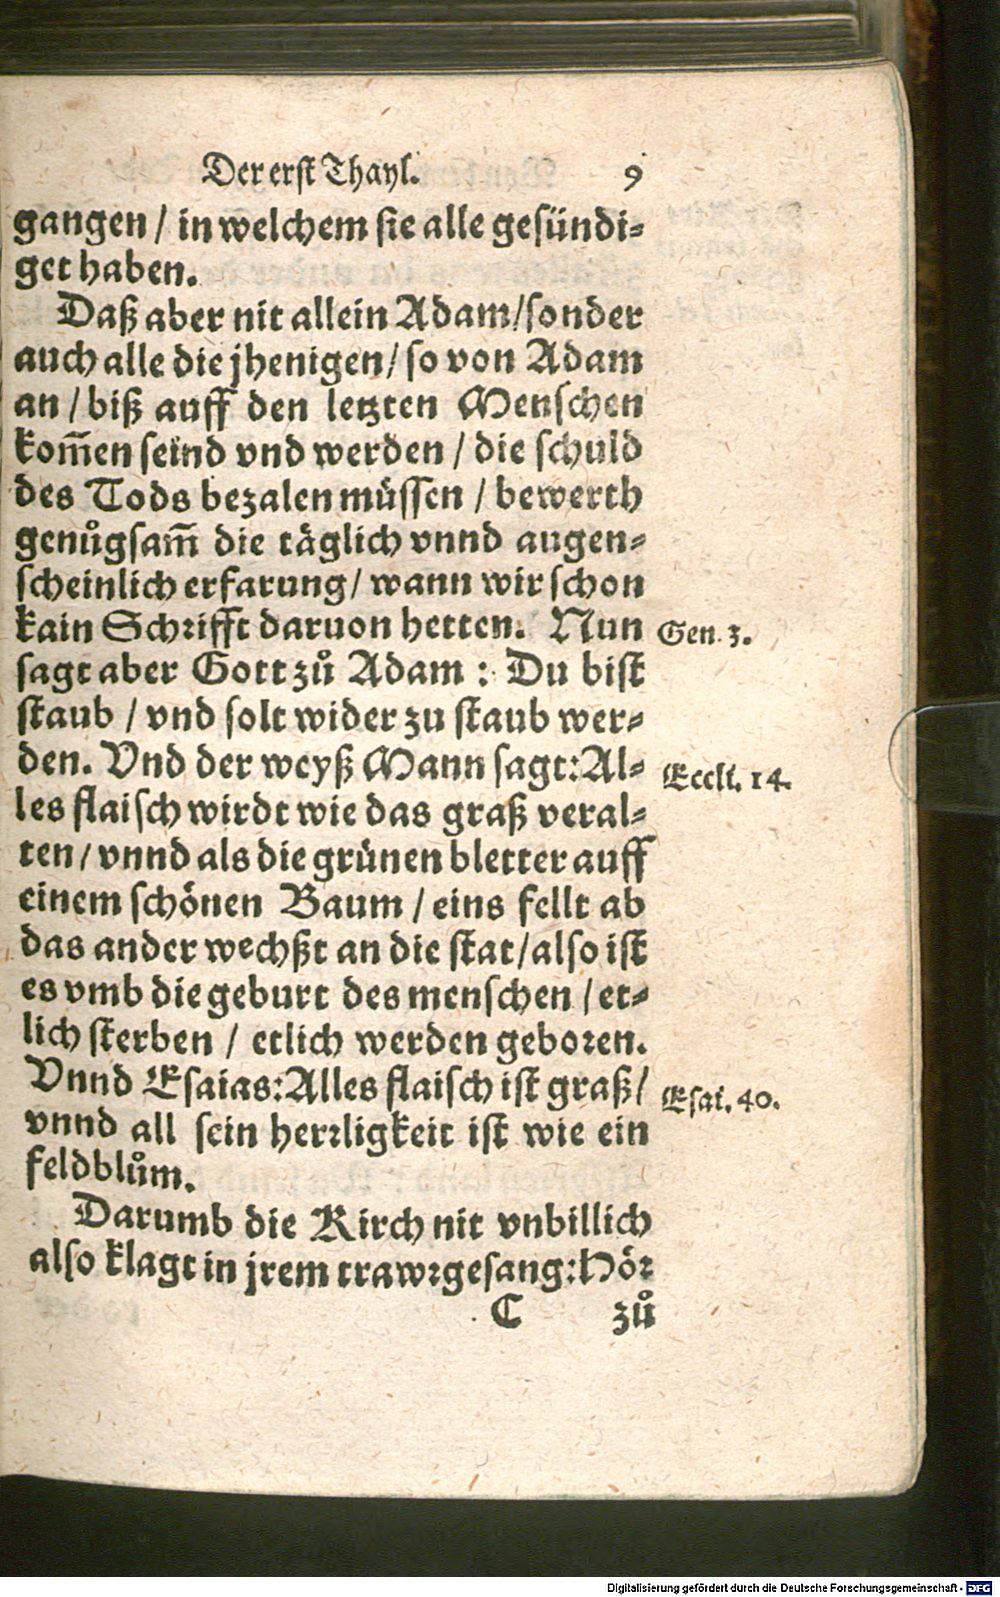 Der erst Thayl. 9
gangen / in welchem sie alle gesündi-
get haben.
Daß aber nit allein Adam/sonder
auch alle die jhenigen/ so von Adam
an / biß auff den letzten Menschen
kom̃en seind vnd werden / die schuld
des Tods bezalen müssen / bewerth
genůgsam̃ die täglich vnnd augen-
scheinlich erfarung/ wann wir schon
kain Schrifft daruon hetten. Nun Gen. 3.
sagt aber Gott zů Adam : Du bist
staub / vnd solt wider zu staub wer-
den. Vnd der weyß Mann sagt: Al- Eccli. 14.
les flaisch wirdt wie das graß veral-
ten / vnnd als die grünen bletter auff
einem schönen Baum / eins fellt ab
das ander wechßt an die stat/also ist
es vmb die geburt des menschen / et-
lich sterben / etlich werden geboren.
Vnnd Esaias: Alles flaisch ist graß/ Esai. 40.
vnnd all sein herrligkeit ist wie ein
feldblům.
Darumb die Kirch nit vnbillich
also klagt in jrem trawrgesang: Hör
C zů
Digitalisierung gefördert durch die Deutsche Forschungsgemeinschaft - DFG